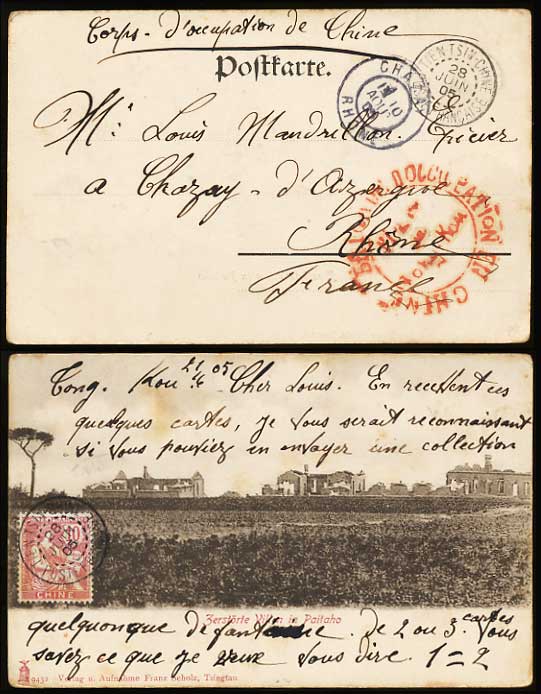 Corps - d'occupation de Chine
Postkarte.
TIEN-TSIN-CHINE
28
JUIN
05
FRANÇAISE
CHAZAY
10
AOUT
05
RHONE
Mr. Louis Mandrillon. Épicier
a Chazay - d'Azergue
Rhône
France
D'OCCUPATION EN CHINE
Tong. Kou 21/6 05 Cher Louis. En recettent ces
quelques cartes, je vous serait reconnaissant
si vous pouviez en envoyer une collection
10
CHINE
28
05
Zerstörte Villen in Paitaho
quelquonque de fantaisie. de 2 ou 3 cartes vous
savez ce que je veux vous dire 1=2
9432 Verlag u. Aufnahme Franz Scholz, Tsingtau